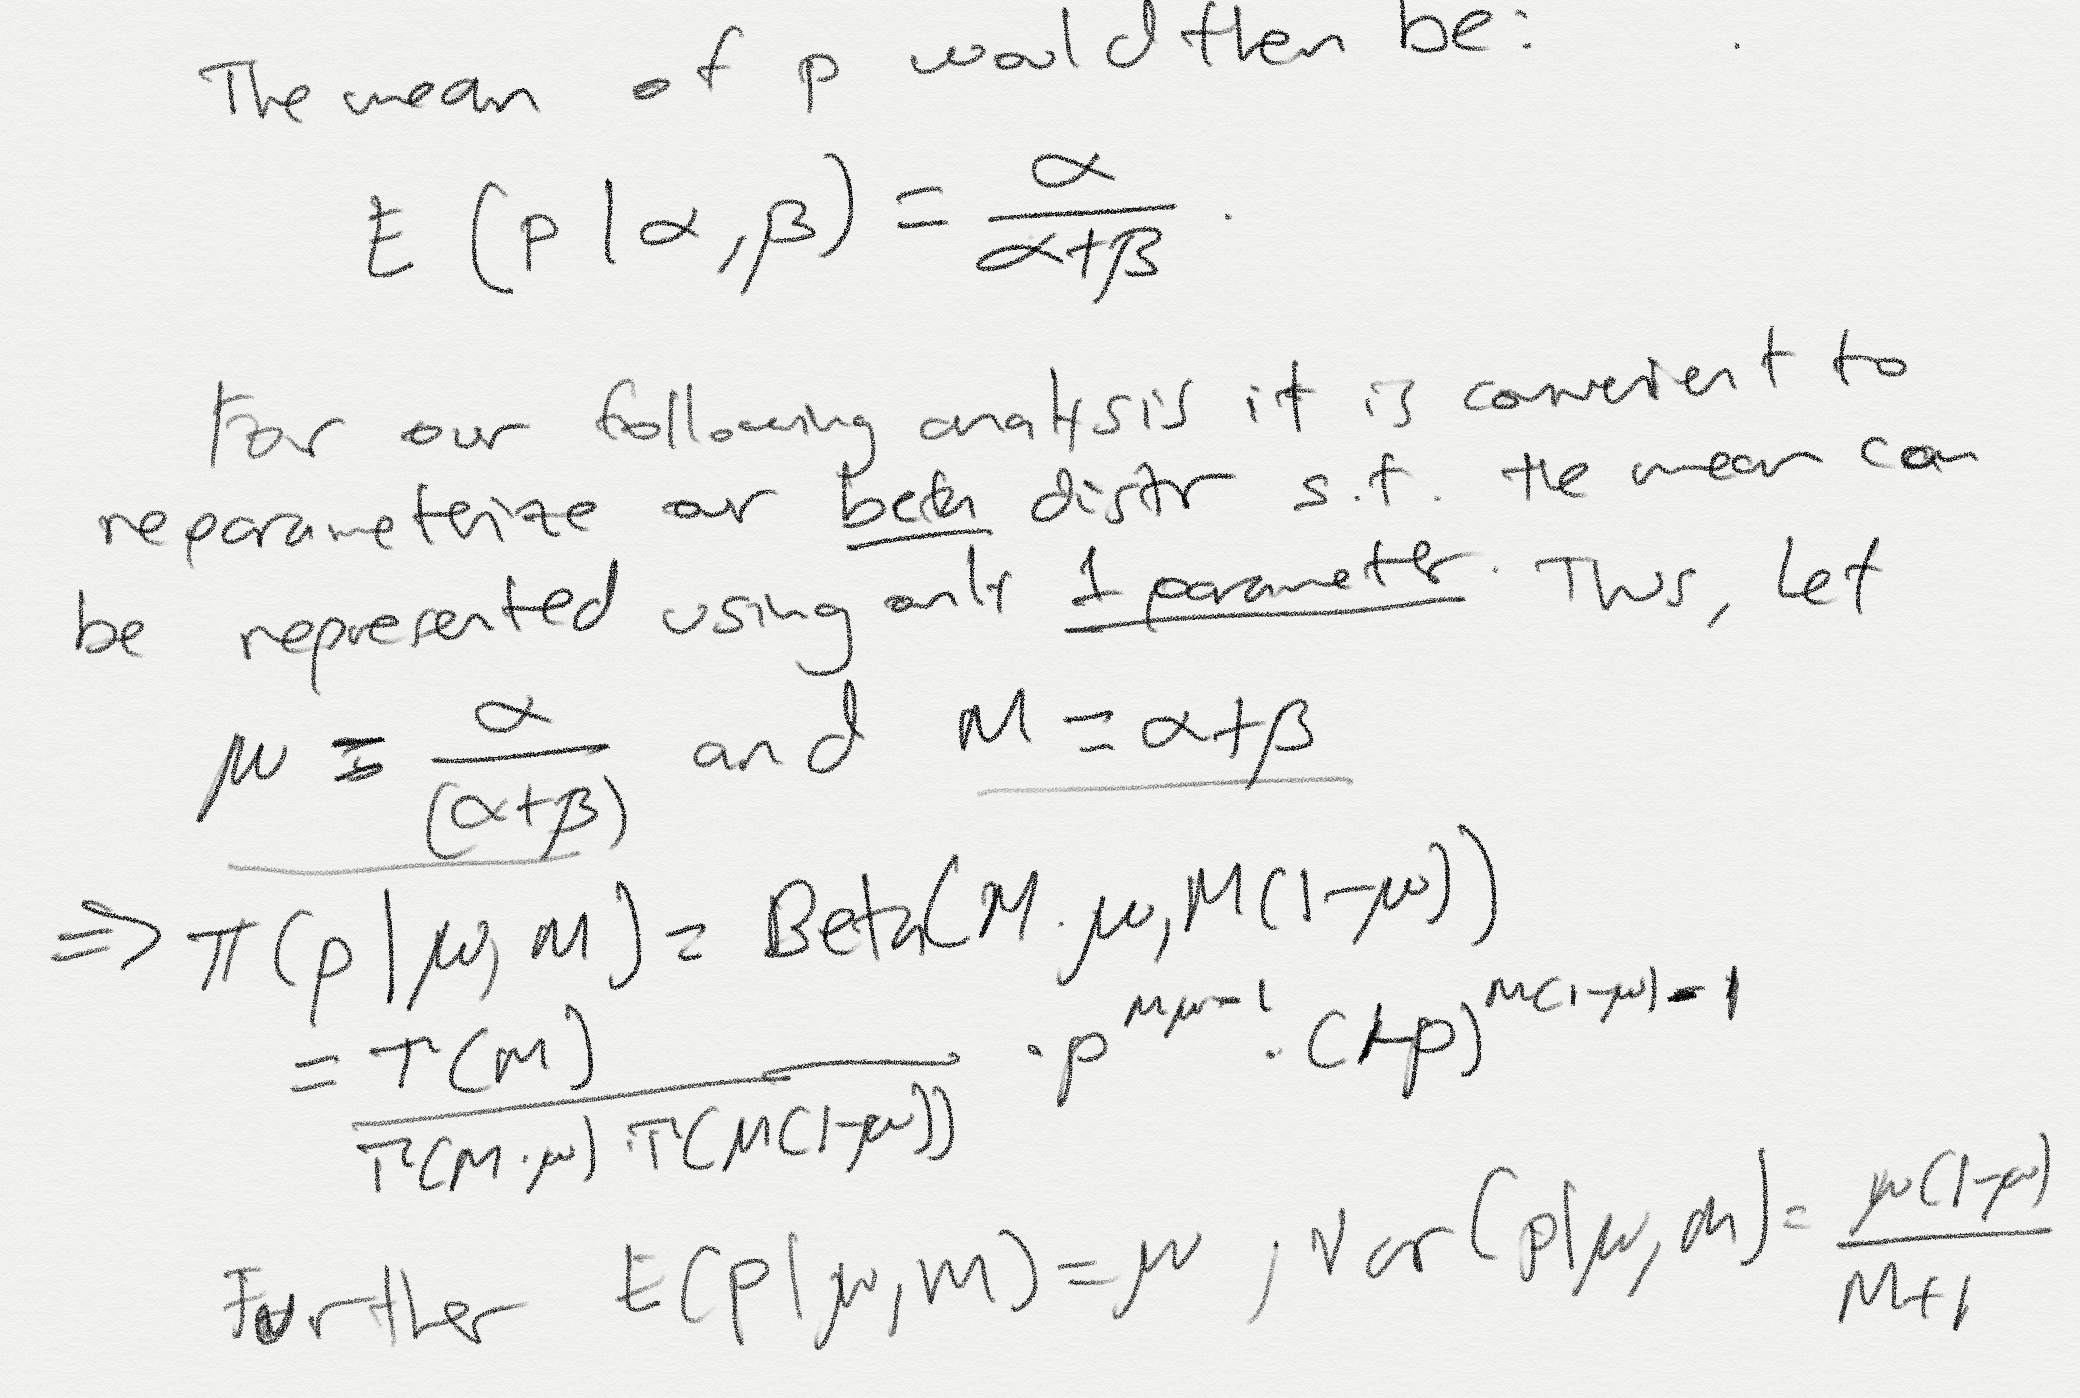 The mean of p would then be:
E (p | α, β) = α / (α+β) .
For our following analysis it is convenient to
reparameterize our beta distr s.t. the mean can
be represented using only 1 parameter. Thus, Let
μ = α / (α+β) and M = α+β
⇒ π(p | μ, M) = Beta(M · μ, M(1-μ))
= Γ(M) / Γ(M·μ) · Γ(M(1-μ)) · p^(Mμ-1) · (1-p)^(M(1-μ)-1)
Further E(p | μ, M) = μ , Var(p | μ, M) = μ(1-μ) / M+1